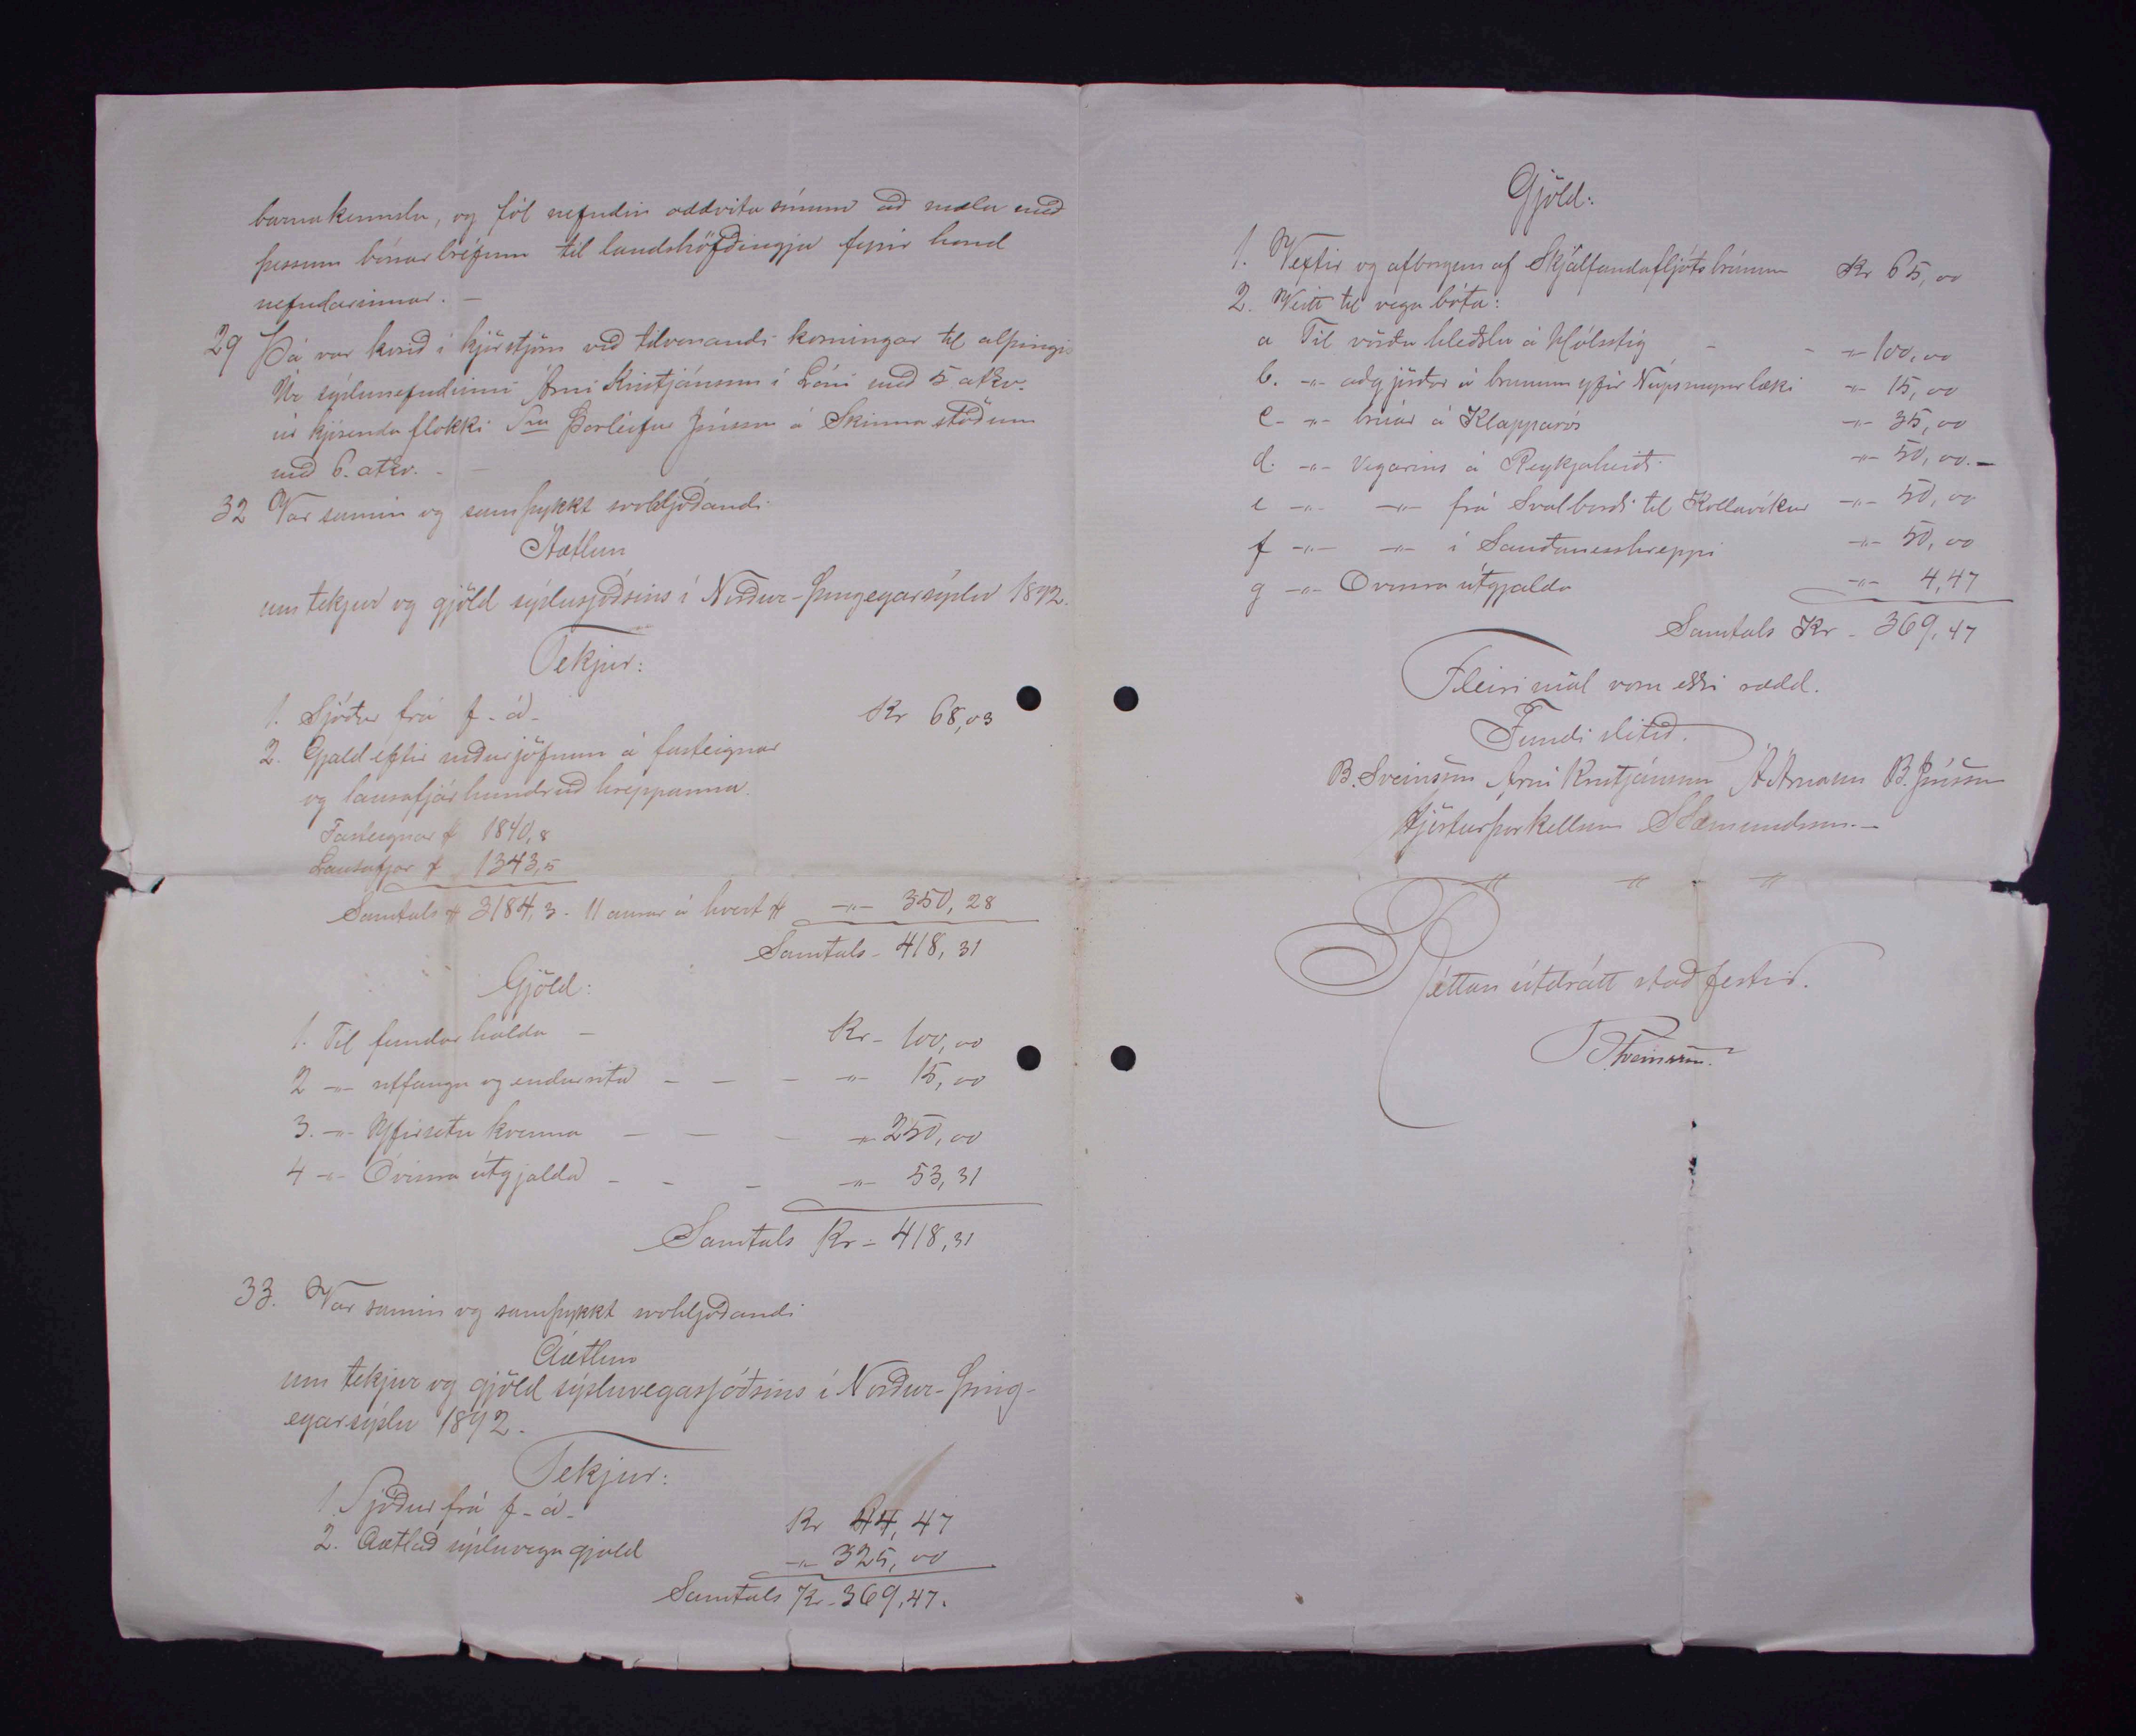 barnakennslu, og fól nefndin oddvita sínum að mæla með
þessum bónarbréfum til landshöfðingja fyrir hönd
nefndarinnar. –
29 Þá var kosið í kjörstjórn við tilvonandi kosningar til alþingis
Úr sýslunefndinni Árni Kristjánsson í Lóni með 5 atkv.
úr kjósenda flokki Sra Þorleifur Jónsson á Skinnastöðum
með 6. atkv. –
32 Var samin og samþykkt svohljóðandi
Áætlun
um tekjur og gjöld sýslusjóðsins í Norður-Þingeyarsýslu 1892.
Tekjur:
1. Sjóður frá f. á. Kr 68,03
2. Gjald eftir niðurjöfnun á fasteignar
og lausafjárhundruð hreppanna.
Fasteignar # 1840,8
Lausafjár # 1343,5
Samtals # 3184,3 - 11 aurar á hvert # -„- 350,28
Samtals - 418,31
Gjöld:
1. Til fundarhalda – Kr - 100,00
2 -„- ritfanga og endurrita – – – -„- 15,00
3. -„- Yfirsetukvenna – – – -„- 250,00
4 -„- Óvissra útgjalda – – – -„- 53,31
Samtals Kr - 418,31
33. Var samin og samþykkt svohljóðandi
Áætlun
um tekjur og gjöld sýsluvegasjóðsins í Norður-Þing-
eyarsýslu 1892.
Tekjur:
1. Sjóður frá f. á. Kr 44,47
2. Áætlað sýsluvegagjald -„- 325,00
Samtals Kr. 369,47.
Gjöld:
1. Vextir og afborgun af Skjálfandafljótsbrúnum Kr 65,00
2. Veitt til vegabóta:
a Til vörðuhleðslu á Hólsstíg - - -„- 100,00
b. -„- aðgjörðar á brúnum yfir Núpsmýrarlæki -„- 15,00
c- -„- brúar á Klapparós -„- 35,00
d. -„- Vegarins á Reykjaheiði -„- 50,00. –
e -„- -„- frá Svalbarði til Kollavíkur -„- 50,00
f -„- -„- í Sauðaneshreppi -„- 50,00
g -„- Ovissra útgjalda -„- 4,47
Samtals Kr - 369,47
Fleiri mál voru ekki rædd.
Fundi slitið.
B. Sveinsson Árni Kristjánsson Á Árnason B. Jónsson
Hjörtur Þorkellsson S Sæmundsson. –
-„- -„- -„-
Réttan útdrátt staðfestir.
B. Sveinsson.